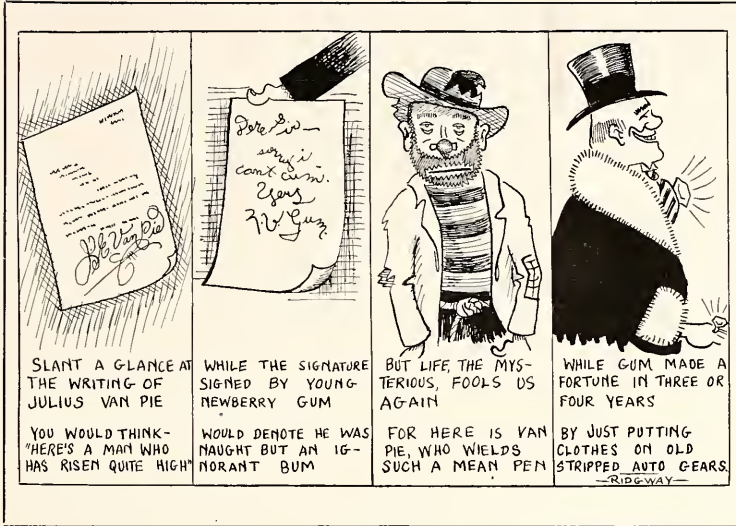 J. V.
Van Pie
Dere Sir—
sorry i
cant cum.
Yers
N.W. Gum
SLANT A GLANCE AT
THE WRITING OF
JULIUS VAN PIE
YOU WOULD THINK-
"HERE'S A MAN WHO
HAS RISEN QUITE HIGH"
WHILE THE SIGNATURE
SIGNED BY YOUNG
NEWBERRY GUM
WOULD DENOTE HE WAS
NAUGHT BUT AN IG-
NORANT BUM
BUT LIFE, THE MYS-
TERIOUS, FOOLS US
AGAIN
FOR HERE IS VAN
PIE, WHO WIELDS
SUCH A MEAN PEN
WHILE GUM MADE A
FORTUNE IN THREE OR
FOUR YEARS
BY JUST PUTTING
CLOTHES ON OLD
STRIPPED AUTO GEARS.
—RIDGWAY—